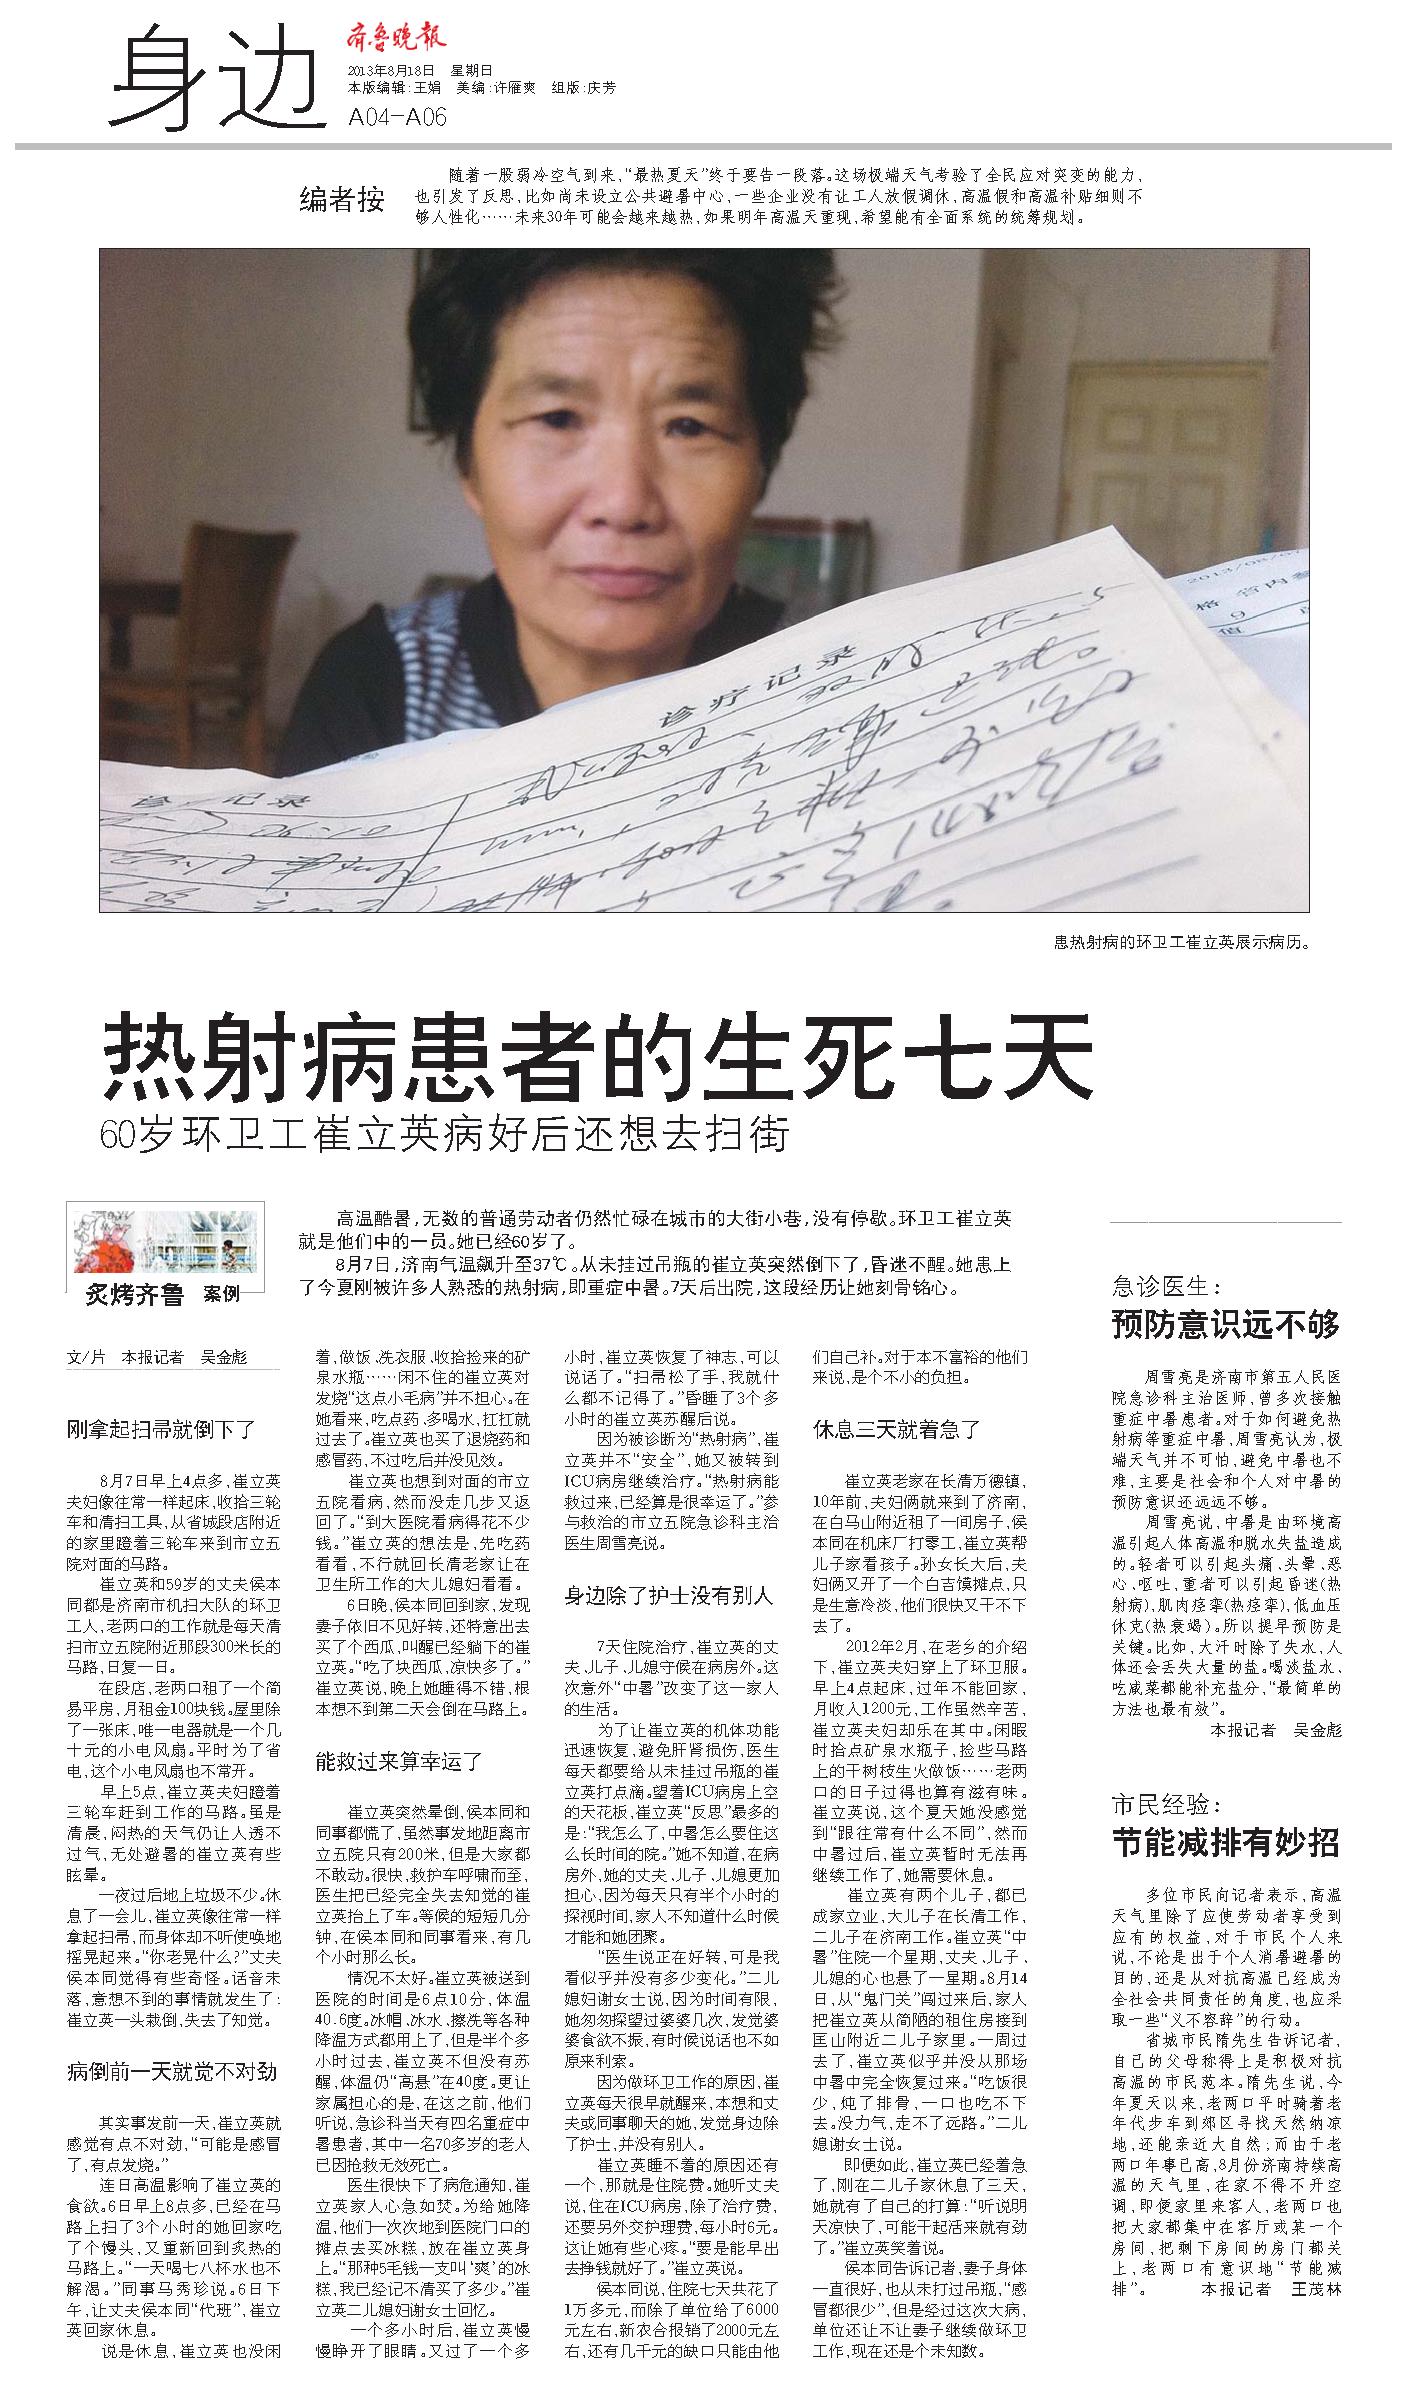 身边
齐鲁晚报
2013年8月18日 星期日
本版编辑:王娟 美编:许雁爽 组版:庆芳
A04-A06
编者按
随着一股弱冷空气到来,“最热夏天”终于要告一段落。这场极端天气考验了全民应对突变的能力,
也引发了反思,比如尚未设立公共避暑中心,一些企业没有让工人放假调休,高温假和高温补贴细则不
够人性化……未来30年可能会越来越热,如果明年高温天重现,希望能有全面系统的统筹规划。
诊疗记录
诊 记录
患热射病的环卫工崔立英展示病历。
热射病患者的生死七天
60岁环卫工崔立英病好后还想去扫街
炙烤齐鲁 案例
高温酷暑,无数的普通劳动者仍然忙碌在城市的大街小巷,没有停歇。环卫工崔立英
就是他们中的一员。她已经60岁了。
8月7日,济南气温飙升至37℃。从未挂过吊瓶的崔立英突然倒下了,昏迷不醒。她患上
了今夏刚被许多人熟悉的热射病,即重症中暑。7天后出院,这段经历让她刻骨铭心。
文/片 本报记者 吴金彪
刚拿起扫帚就倒下了
8月7日早上4点多,崔立英
夫妇像往常一样起床,收拾三轮
车和清扫工具,从省城段店附近
的家里蹬着三轮车来到市立五
院对面的马路。
崔立英和59岁的丈夫侯本
同都是济南市机扫大队的环卫
工人,老两口的工作就是每天清
扫市立五院附近那段300米长的
马路,日复一日。
在段店,老两口租了一个简
易平房,月租金100块钱。屋里除
了一张床,唯一电器就是一个几
十元的小电风扇。平时为了省
电,这个小电风扇也不常开。
早上5点,崔立英夫妇蹬着
三轮车赶到工作的马路。虽是
清晨,闷热的天气仍让人透不
过气,无处避暑的崔立英有些
眩晕。
一夜过后地上垃圾不少。休
息了一会儿,崔立英像往常一样
拿起扫帚,而身体却不听使唤地
摇晃起来。“你老晃什么?”丈夫
侯本同觉得有些奇怪。话音未
落,意想不到的事情就发生了:
崔立英一头栽倒,失去了知觉。
病倒前一天就觉不对劲
其实事发前一天,崔立英就
感觉有点不对劲,“可能是感冒
了,有点发烧。”
连日高温影响了崔立英的
食欲。6日早上8点多,已经在马
路上扫了3个小时的她回家吃
了个馒头,又重新回到炙热的
马路上。“一天喝七八杯水也不
解渴。”同事马秀珍说。6日下
午,让丈夫侯本同“代班”,崔立
英回家休息。
说是休息,崔立英也没闲
着,做饭、洗衣服、收拾捡来的矿
泉水瓶……闲不住的崔立英对
发烧“这点小毛病”并不担心。在
她看来,吃点药、多喝水,扛扛就
过去了。崔立英也买了退烧药和
感冒药,不过吃后并没见效。
崔立英也想到对面的市立
五院看病,然而没走几步又返
回了。“到大医院看病得花不少
钱。”崔立英的想法是,先吃药
看看,不行就回长清老家让在
卫生所工作的大儿媳妇看看。
6日晚,侯本同回到家,发现
妻子依旧不见好转,还特意出去
买了个西瓜,叫醒已经躺下的崔
立英。“吃了块西瓜,凉快多了。”
崔立英说,晚上她睡得不错,根
本想不到第二天会倒在马路上。
能救过来算幸运了
崔立英突然晕倒,侯本同和
同事都慌了,虽然事发地距离市
立五院只有200米,但是大家都
不敢动。很快,救护车呼啸而至,
医生把已经完全失去知觉的崔
立英抬上了车。等候的短短几分
钟,在侯本同和同事看来,有几
个小时那么长。
情况不太好。崔立英被送到
医院的时间是6点10分,体温
40.6度。冰帽、冰水、擦洗等各种
降温方式都用上了,但是半个多
小时过去,崔立英不但没有苏
醒,体温仍“高悬”在40度。更让
家属担心的是,在这之前,他们
听说,急诊科当天有四名重症中
暑患者,其中一名70多岁的老人
已因抢救无效死亡。
医生很快下了病危通知,崔
立英家人心急如焚。为给她降
温,他们一次次地到医院门口的
摊点去买冰糕,放在崔立英身
上。“那种5毛钱一支叫‘爽’的冰
糕,我已经记不清买了多少。”崔
立英二儿媳妇谢女士回忆。
一个多小时后,崔立英慢
慢睁开了眼睛。又过了一个多
小时,崔立英恢复了神志,可以
说话了。“扫帚松了手,我就什
么都不记得了。”昏睡了3个多
小时的崔立英苏醒后说。
因为被诊断为“热射病”,崔
立英并不“安全”,她又被转到
ICU病房继续治疗。“热射病能
救过来,已经算是很幸运了。”参
与救治的市立五院急诊科主治
医生周雪亮说。
身边除了护士没有别人
7天住院治疗,崔立英的丈
夫、儿子、儿媳守候在病房外。这
次意外“中暑”改变了这一家人
的生活。
为了让崔立英的机体功能
迅速恢复,避免肝肾损伤,医生
每天都要给从未挂过吊瓶的崔
立英打点滴。望着ICU病房上空
的天花板,崔立英“反思”最多的
是:“我怎么了,中暑怎么要住这
么长时间的院。”她不知道,在病
房外,她的丈夫、儿子、儿媳更加
担心,因为每天只有半个小时的
探视时间,家人不知道什么时候
才能和她团聚。
“医生说正在好转,可是我
看似乎并没有多少变化。”二儿
媳妇谢女士说,因为时间有限,
她匆匆探望过婆婆几次,发觉婆
婆食欲不振,有时候说话也不如
原来利索。
因为做环卫工作的原因,崔
立英每天很早就醒来,本想和丈
夫或同事聊天的她,发觉身边除
了护士,并没有别人。
崔立英睡不着的原因还有
一个,那就是住院费。她听丈夫
说,住在ICU病房,除了治疗费,
还要另外交护理费,每小时6元。
这让她有些心疼。“要是能早出
去挣钱就好了。”崔立英说。
侯本同说,住院七天共花了
1万多元,而除了单位给了6000
元左右,新农合报销了2000元左
右,还有几千元的缺口只能由他
们自己补。对于本不富裕的他们
来说,是个不小的负担。
休息三天就着急了
崔立英老家在长清万德镇,
10年前,夫妇俩就来到了济南,
在白马山附近租了一间房子,侯
本同在机床厂打零工,崔立英帮
儿子家看孩子。孙女长大后,夫
妇俩又开了一个白吉馍摊点,只
是生意冷淡,他们很快又干不下
去了。
2012年2月,在老乡的介绍
下,崔立英夫妇穿上了环卫服。
早上4点起床,过年不能回家,
月收入1200元,工作虽然辛苦,
崔立英夫妇却乐在其中。闲暇
时拾点矿泉水瓶子,捡些马路
上的干树枝生火做饭……老两
口的日子过得也算有滋有味。
崔立英说,这个夏天她没感觉
到“跟往常有什么不同”,然而
中暑过后,崔立英暂时无法再
继续工作了,她需要休息。
崔立英有两个儿子,都已
成家立业,大儿子在长清工作,
二儿子在济南工作。崔立英“中
暑”住院一个星期,丈夫、儿子、
儿媳的心也悬了一星期。8月14
日,从“鬼门关”闯过来后,家人
把崔立英从简陋的租住房接到
匡山附近二儿子家里。一周过
去了,崔立英似乎并没从那场
中暑中完全恢复过来。“吃饭很
少,炖了排骨,一口也吃不下
去。没力气,走不了远路。”二儿
媳谢女士说。
即便如此,崔立英已经着急
了,刚在二儿子家休息了三天,
她就有了自己的打算:“听说明
天凉快了,可能干起活来就有劲
了。”崔立英笑着说。
侯本同告诉记者,妻子身体
一直很好,也从未打过吊瓶,“感
冒都很少”,但是经过这次大病,
单位还让不让妻子继续做环卫
工作,现在还是个未知数。
急诊医生:
预防意识远不够
周雪亮是济南市第五人民医
院急诊科主治医师,曾多次接触
重症中暑患者。对于如何避免热
射病等重症中暑,周雪亮认为,极
端天气并不可怕,避免中暑也不
难,主要是社会和个人对中暑的
预防意识还远远不够。
周雪亮说,中暑是由环境高
温引起人体高温和脱水失盐造成
的。轻者可以引起头痛、头晕、恶
心、呕吐,重者可以引起昏迷(热
射病),肌肉痉挛(热痉挛),低血压
休克(热衰竭)。所以提早预防是
关键。比如,大汗时除了失水,人
体还会丢失大量的盐。喝淡盐水、
吃咸菜都能补充盐分,“最简单的
方法也最有效”。
本报记者 吴金彪
市民经验:
节能减排有妙招
多位市民向记者表示,高温
天气里除了应使劳动者享受到
应有的权益,对于市民个人来
说,不论是出于个人消暑避暑的
目的,还是从对抗高温已经成为
全社会共同责任的角度,也应采
取一些“义不容辞”的行动。
省城市民隋先生告诉记者,
自己的父母称得上是积极对抗
高温的市民范本。隋先生说,今
年夏天以来,老两口平时骑着老
年代步车到郊区寻找天然纳凉
地,还能亲近大自然;而由于老
两口年事已高,8月份济南持续高
温的天气里,在家不得不开空
调,即便家里来客人,老两口也
把大家都集中在客厅或某一个
房间,把剩下房间的房门都关
上,老两口有意识地“节能减
排”。 本报记者 王茂林